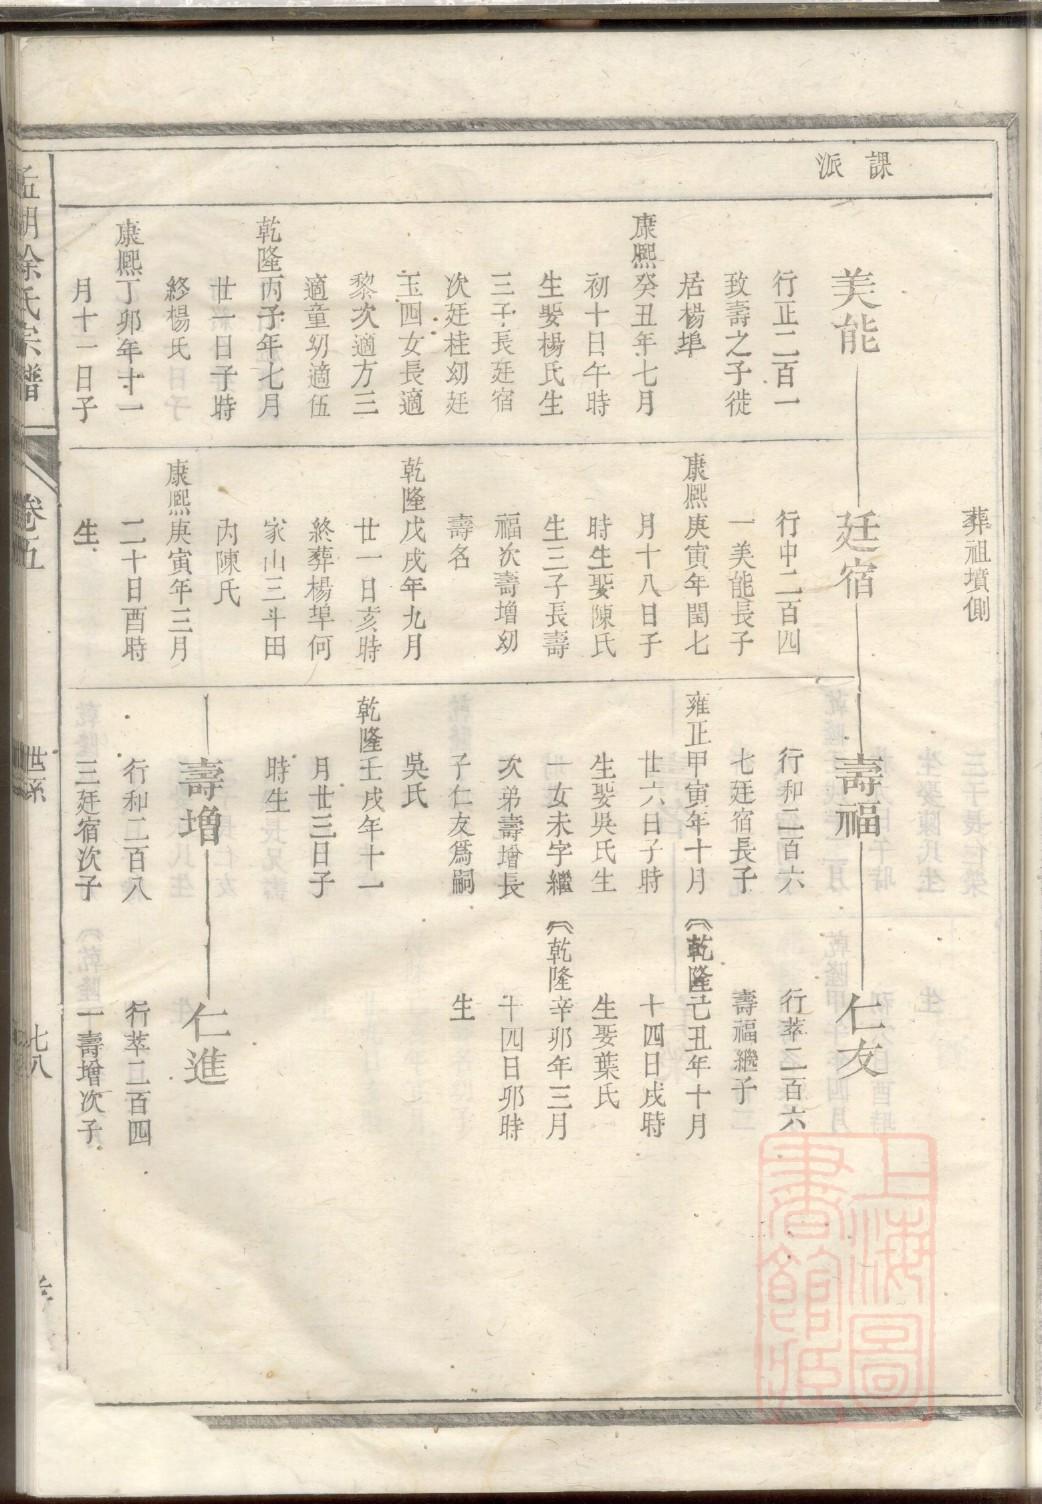 課派
葬祖墳側
美能
行正二百一
致壽之子徙
居楊埠
康熙癸丑年七月
初十日午時
生娶楊氏生
三子長廷宿
次廷桂幼廷
玉四女長適
黎次適方三
適童幼適伍
乾隆丙子年七月
廿一日子時
終楊氏
康熙丁卯年十一
月十一日子
廷宿
行中二百四
一美能長子
康熙庚寅年閏七
月十八日子
時生娶陳氏
生三子長壽
福次壽增幼
壽名
乾隆戊戌年九月
廿一日亥時
終葬楊埠何
家山三斗田
內陳氏
康熙庚寅年三月
二十日酉時
生
壽福
行和二百六
七廷宿長子
雍正甲寅年十月
廿六日子時
生娶吳氏生
一女未字繼
次弟壽增長
子仁友為嗣
吳氏
乾隆壬戌年十一
月廿三日子
時生
壽增
行和二百八
三廷宿次子
仁友
行萃二百六
壽福繼子
乾隆己丑年十月
十四日戌時
生娶葉氏
乾隆辛卯年三月
十四日卯時
生
仁進
行萃二百四
一壽增次子
孟湖徐氏宗譜
卷五
世系
七八
上海圖書館藏